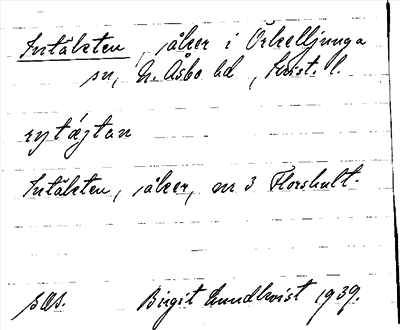 Intäkten, åker i Örkelljunga
sn, N. Åsbo hd, Krist. l.
Intäkten, åker, nr 3 Florshult.
sas. Birgit Lundkvist 1939.